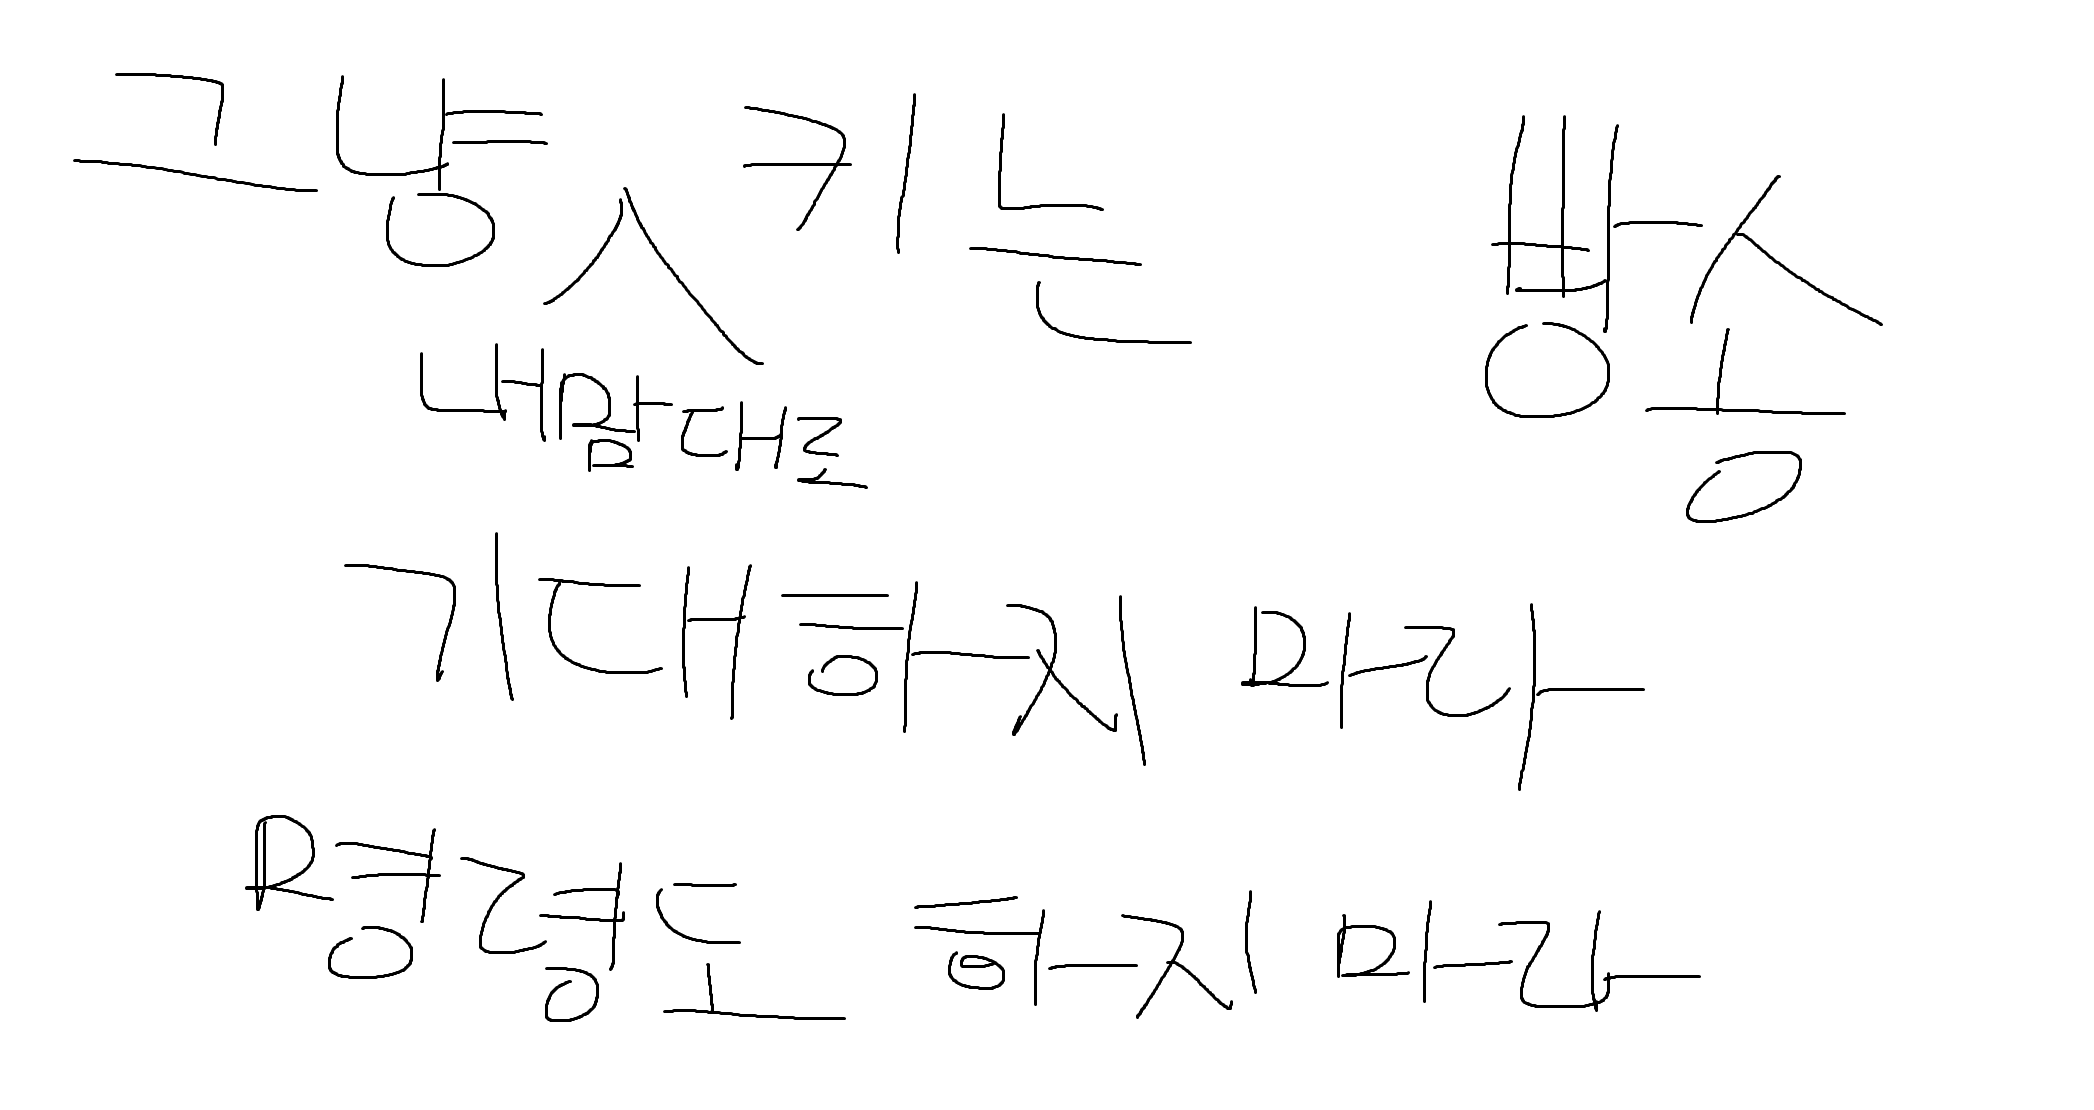 그냥 키는 방송
내맘대로
기대하지 마라
명령도 하지 마라